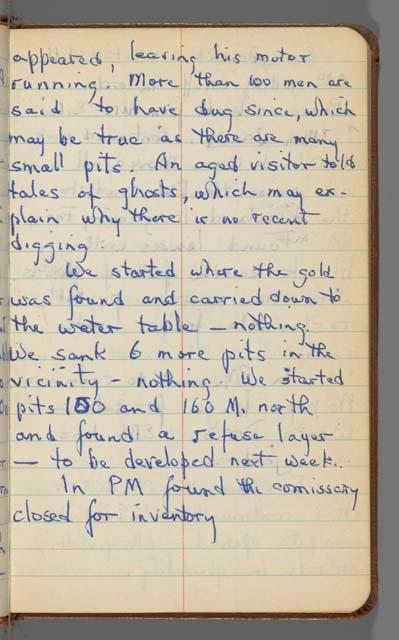 appeared, leaving his motor
running. More than 100 men are
said to have dug since, which
may be true as there are many
small pits. An aged visitor told
tales of ghosts, which may ex-
plain why there is no recent
digging.
We started where the gold
was found and carried down to
the water table — nothing.
We sank 6 more pits in the
vicinity — nothing. We started
pits 100 and 160 M. north
and found a refuse layer
— to be developed next week.
In PM found the comissary
closed for inventory